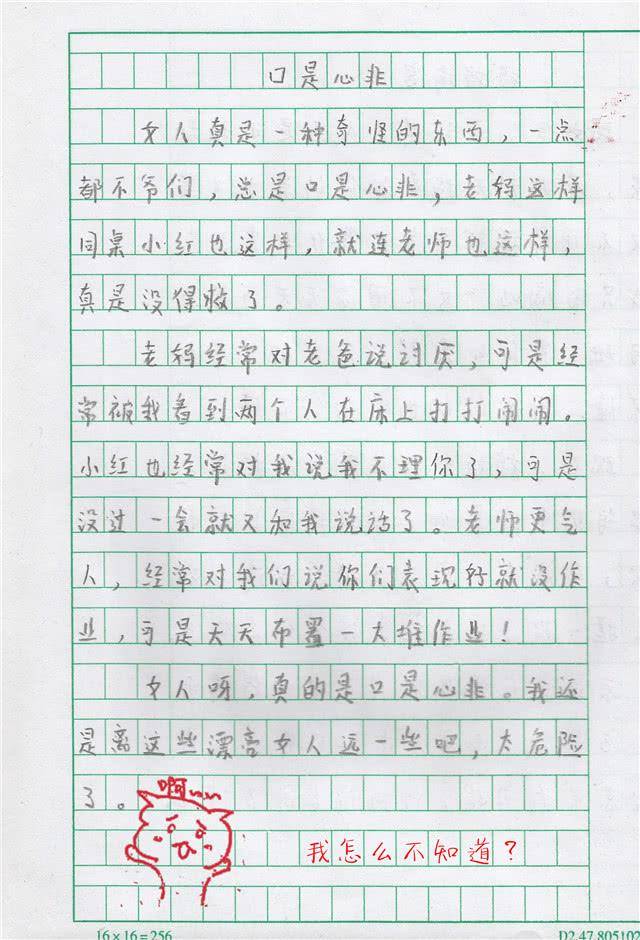 口是心非
女人真是一种奇怪的东西，一点
都不爷们，总是口是心非，老妈这样
同桌小红也这样，就连老师也这样，
真是没得救了。
老妈经常对老爸说讨厌，可是经
常被我看到两个人在床上打打闹闹。
小红也经常对我说我不理你了，可是
没过一会就又和我说话了。老师更气
人，经常对我们说你们表现好就没作
业，可是天天布置一大堆作业！
女人呀，真的是口是心非。我还
是离这些漂亮女人远一些吧，太危险
了。
啊~~
我怎么不知道？
16×16=256
D2.47.805102